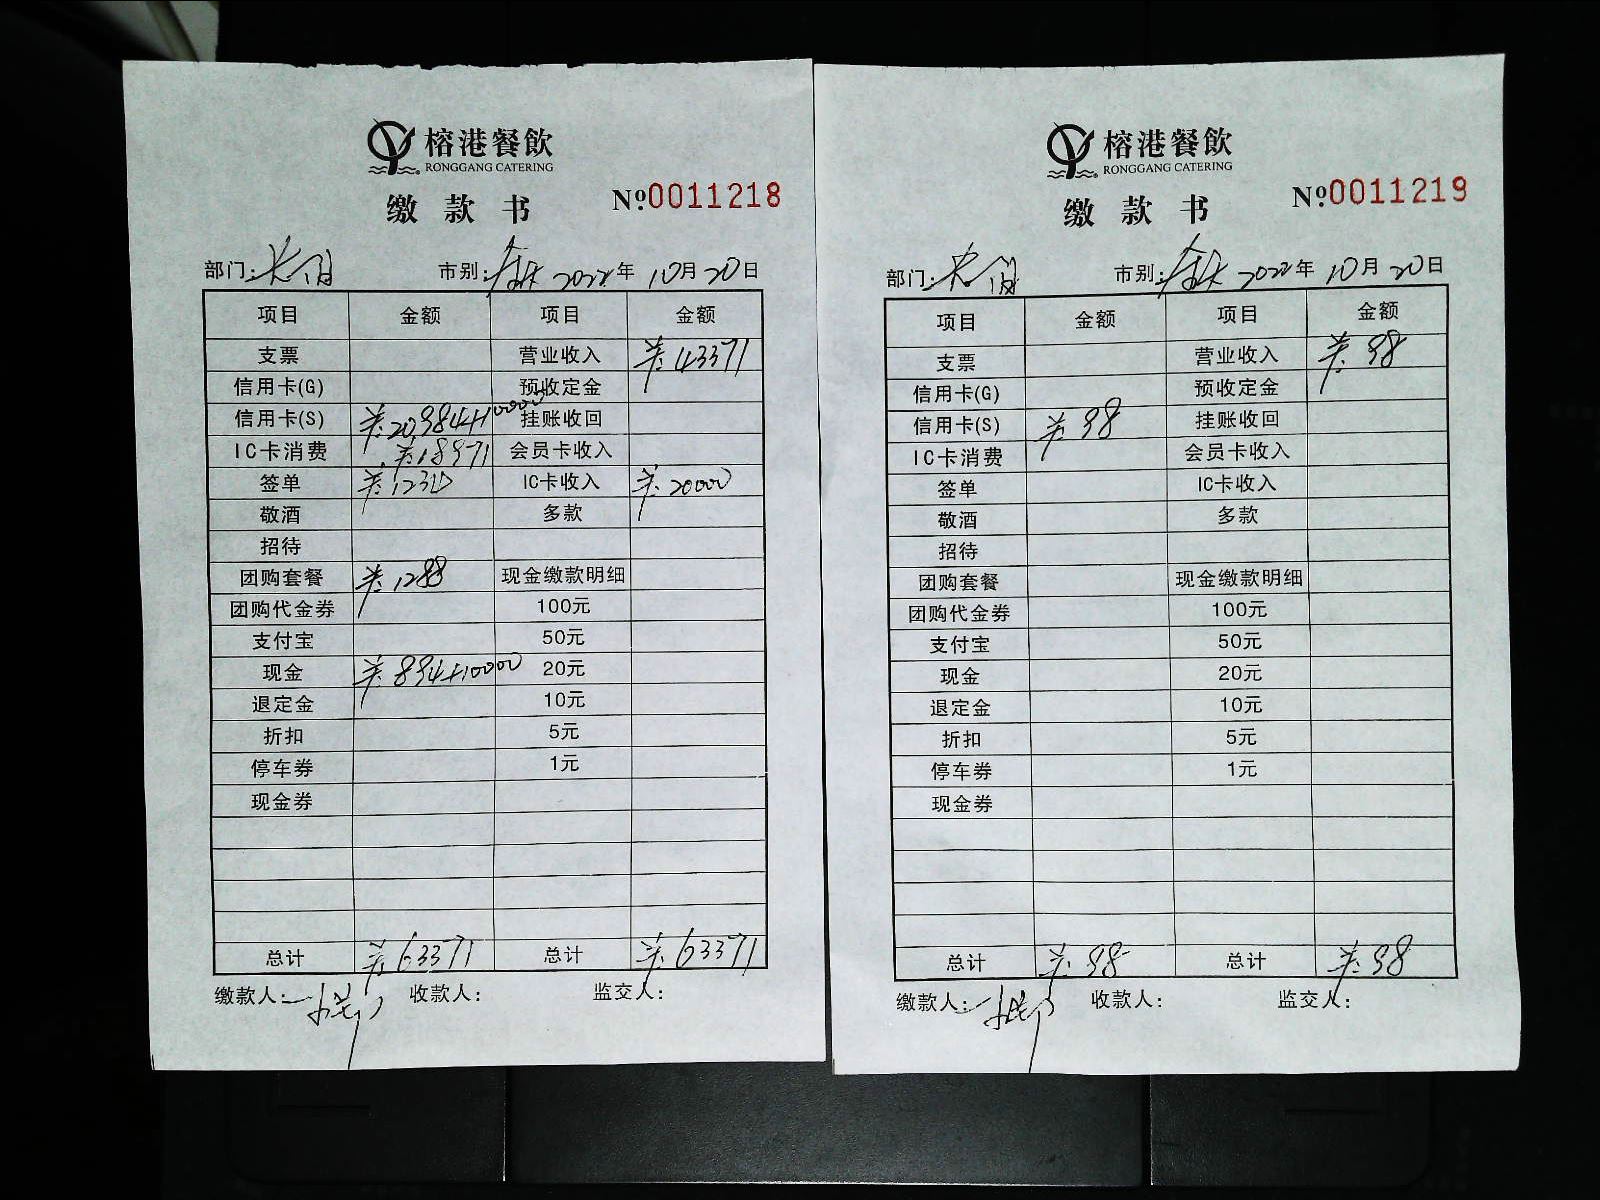 榕港餐飲
RONGGANG CATERING
缴款书
№0011218
部门: 市别: 2022年10月20日
项目 金额 项目 金额
支票 营业收入 ¥:43371
信用卡(G) 预收定金
信用卡(S) ¥:20984+10000 挂账收回
IC卡消费 ¥:18971 会员卡收入
签单 IC卡收入 ¥:20000
敬酒 多款
招待
团购套餐 ¥:1288 现金缴款明细
团购代金券 100元
支付宝 50元
现金 ¥:894+10000 20元
退定金 10元
折扣 5元
停车券 1元
现金券
总计 ¥:63371 总计 ¥:63371
缴款人: 收款人: 监交人:
榕港餐飲
RONGGANG CATERING
缴款书
№0011219
部门: 市别: 2022年10月20日
项目 金额 项目 金额
支票 营业收入 ¥:98
信用卡(G) 预收定金
信用卡(S) ¥:98 挂账收回
IC卡消费 会员卡收入
签单 IC卡收入
敬酒 多款
招待
团购套餐 现金缴款明细
团购代金券 100元
支付宝 50元
现金 20元
退定金 10元
折扣 5元
停车券 1元
现金券
总计 ¥:98 总计 ¥:98
缴款人: 收款人: 监交人: